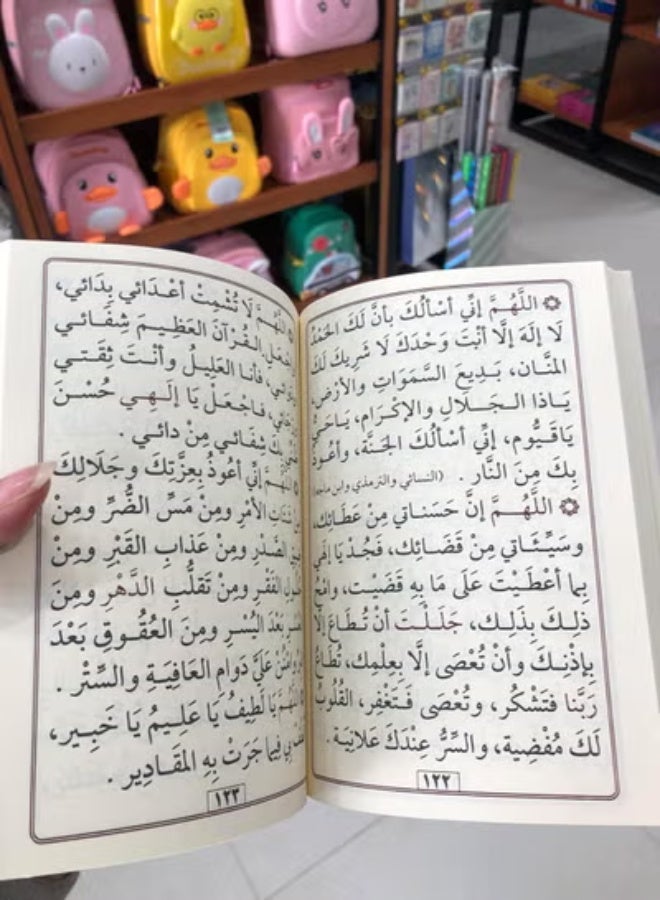 ۞ اللَّهُمَّ إِنِّي أَسْأَلُكَ بِأَنَّ لَكَ الحَمْدُ
لَا إِلَهَ إِلَّا أَنْتَ وَحْدَكَ لَا شَرِيكَ لَكَ
المَنَّان، بَدِيعَ السَّمَوَاتِ وَالأَرْضِ،
يَاذَا الجَـلَالِ والإِكْرَام، يَاحَيُّ
يَاقَيُّوم، إِنِّي أَسْأَلُكَ الجَنَّة، وأَعُوذُ
بِكَ مِنَ النَّار . (النسائي والترمذي وابن ماجه)
۞ اللَّهُـمَّ إِنَّ حَسَنَاتي مِنْ عَطَائِك،
وسَيِّئَاتي مِنْ قَضَائِك، فَجُدْ يَا إِلَهِي
بِما أَعْطَيْتَ عَلَى مَا بِهِ قَضَيْت، وامْحُ
ذَلِـكَ بِذَلِـك، جَلَـلْـتَ أَنْ تُـطَـاعَ إِلَّا
بِإِذْنِـكَ وأَنْ تُعْصَى إِلَّا بِعِلْمِك، تُطَاعُ
رَبَّنا فَتَشْكُر، وتُعْصَى فَـتَغْفِر، القُلُوبُ
لَكَ مُفْضِية، والسِّرُّ عِنْدَكَ عَلَانِيَة .
١٢٢
اللَّهُمَّ لَا تُشْمِتْ أَعْـدَائي بِدَائي،
القُـرْآنَ العَظِيـمَ شِفَـائـي
فأَنـا العَلِيلُ وأَنْـتَ ثِقَـتـي
فـاجْعَـلْ يَا إِلَـهِـي حُسْـنَ
شِفَـائي مِنْ دائـي .
اللَّهُمَّ إِنِّي أَعُوذُ بِعِزَّتِكَ وجَلَالِكَ
الأَمْرِ ومِنْ مَسِّ الضُّرِّ ومِنْ
الصَّدْرِ ومِنْ عَذابِ القَبْرِ ومِنْ
الفَقْرِ ومِنْ تَقَلُّبِ الدَّهْرِ ومِنَ
بَعْدَ اليُسْرِ ومِنَ العُقُـوقِ بَعْدَ
وامْنُنْ عَلَيَّ دَوامِ العَافِيَـةِ والسِّتْر .
يَا لَطِيفُ يَا عَلِـيمُ يَا خَبِـير،
بي فِيما جَرَتْ بِهِ المَقَـادِير .
١٢٣